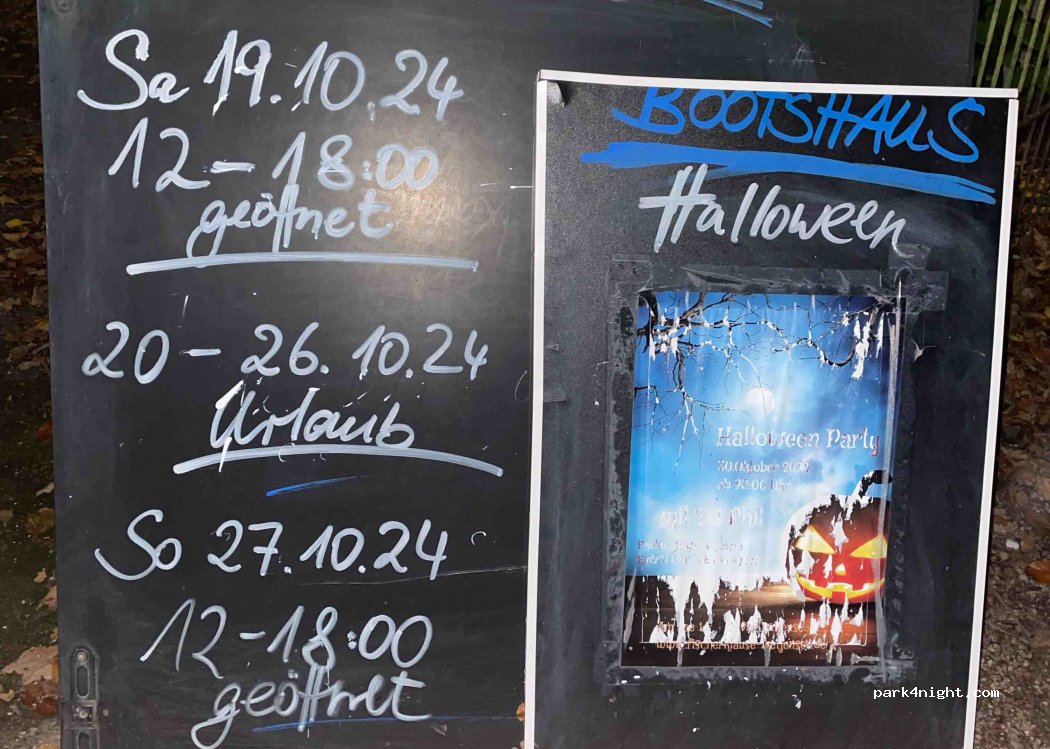 Sa 19.10.24
12 - 18:00
geöffnet
20 - 26.10.24
Urlaub
So 27.10.24
12 - 18:00
geöffnet
BOOTSHAUS
Halloween
Halloween Party
ab 20.00 Uhr
mit DJ Phil
park4night.com